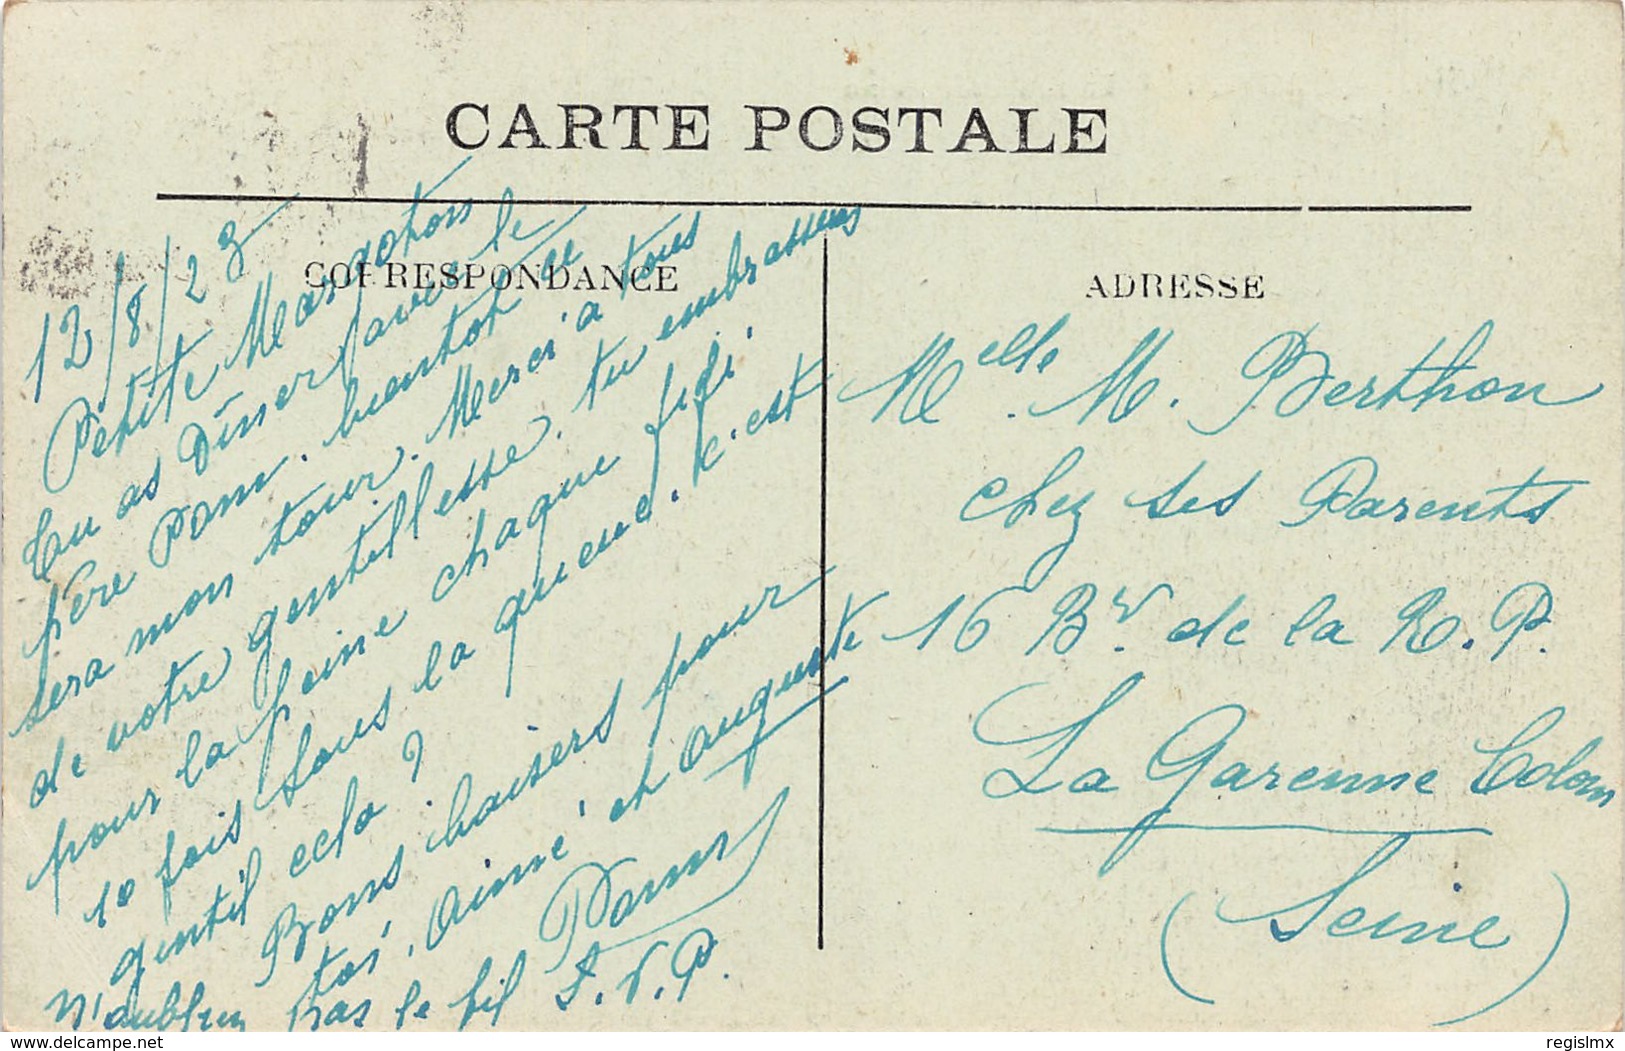 CARTE POSTALE
CORRESPONDANCE
ADRESSE
12/8/23
Petite Margoton
tu as Dîner avec le
père Pom. bientot ce
sera mon tour. Merci a tous
de votre gentillesse. tu embrasseras
pour la peine chaque fifi
10 fois sous la queue. c'est
gentil cela ?
Bons baisers pour
toi, Aimé et Auguste
Pom
N'oublie pas le fil S.V.P.
Melle. M. Berthon
chez ses Parents
16 Br. de la R. P.
La Garenne Colom
(Seine)
delcampe.net
regislmx